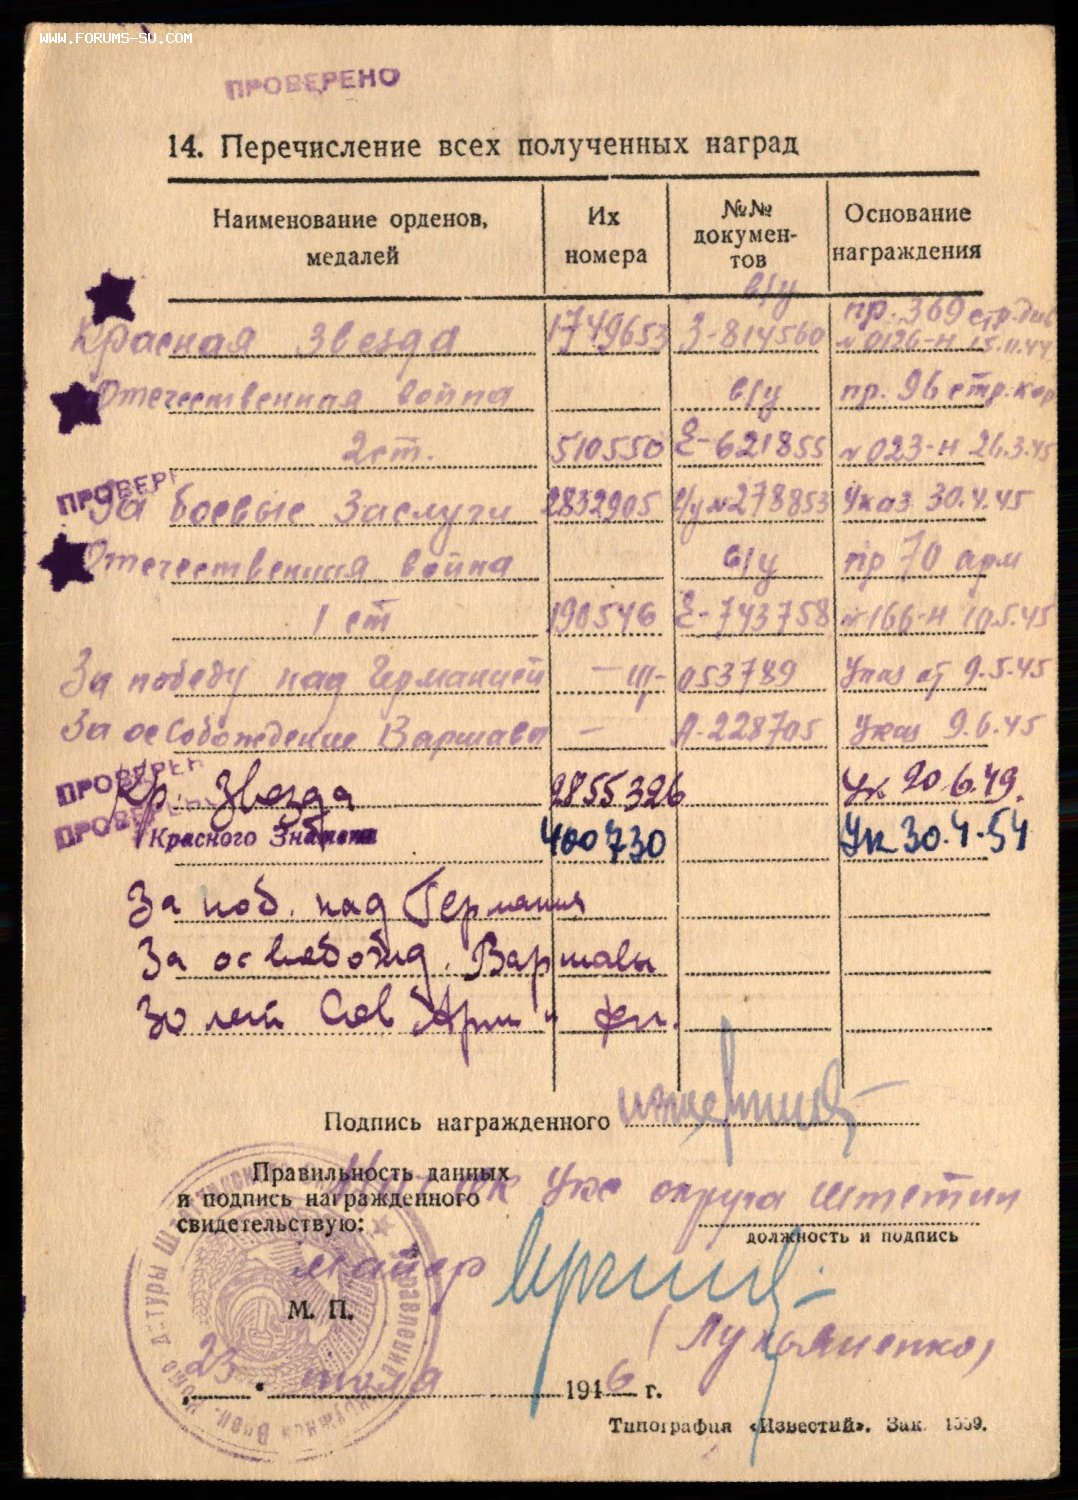 WWW.FORUMS-SU.COM
ПРОВЕРЕНО
14. Перечисление всех полученных наград
Наименование орденов, медалей
Их номера
№№ докумен-тов
Основание награждения
в/у
Красная Звезда 1749653 З-814560 пр. 369 стр. див № 0126-н 15.11.44
Отечественная война в/у пр. 96 стр. кор
2 ст. 510550 Е-621855 № 023-н 26.3.45
ПРОВЕРЕ
За боевые Заслуги 2832905 в/у № 278853 Указ 30.4.45
Отечественная война в/у пр 70 арм
1 ст 190546 Е-743758 № 166-н 10.5.45
За победу над Германией 053789 Указ от 9.5.45
За освобождение Варшавы — А-228705 Указ 9.6.45
ПРОВЕРЕН
Кр. Звезда 2855326 Ук 20.6.49.
ПРОВЕРЕ
Красного Знамени 400730 Ук 30.4.54
За поб. над Германия
За освобожд. Варшавы
30 лет Сов Арм и фл.
Подпись награжденного
Правильность данных
и подпись награжденного
свидетельствую:
округа Штетин
должность и подпись
майор
М. П.
(Лукьяненко)
23 июля 1946 г.
Типография «Известий». Зак. 1559.